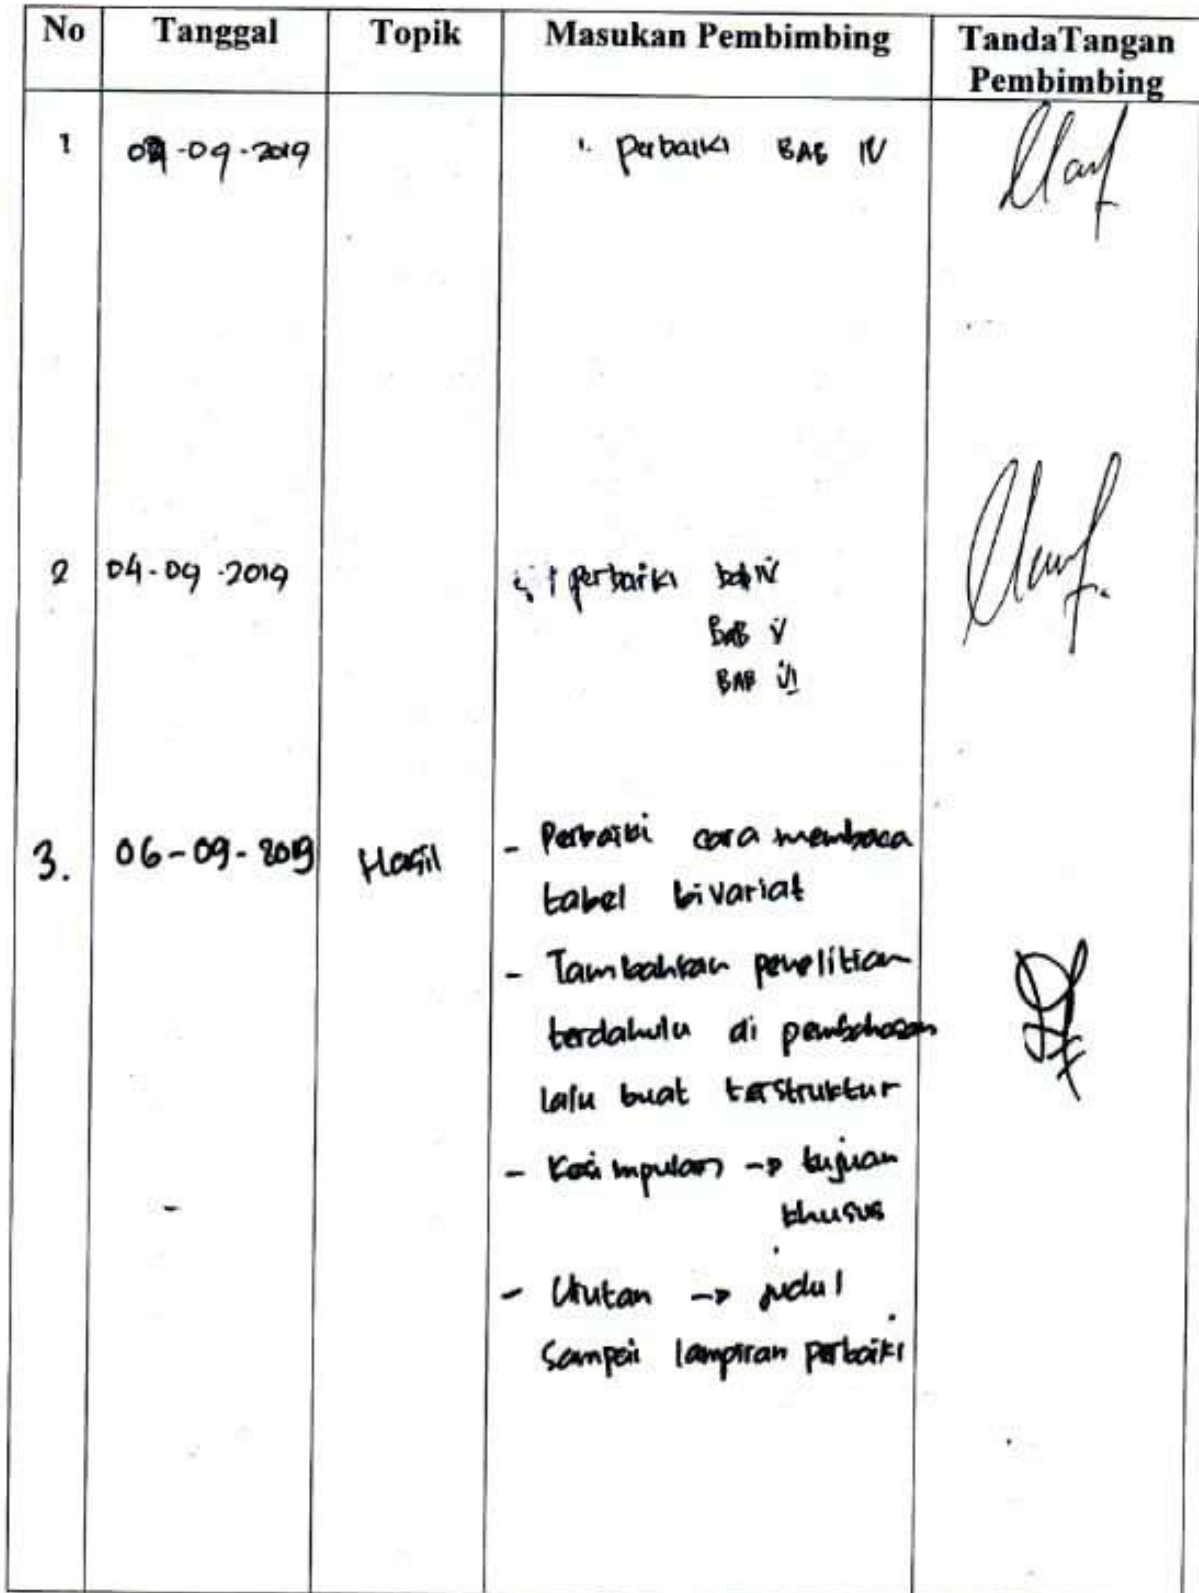 No Tanggal Topik Masukan Pembimbing TandaTangan
Pembimbing
1 -09-2019 1. perbaiki BAB IV
2 04-09-2019 1 perbaiki bab IV
BAB V
BAB VI
3. 06-09-2019 Hasil - Perbaiki cara membaca
tabel bivariat
- Tambahkan penelitian
terdahulu di pembahasan
lalu buat terstruktur
- Kesimpulan -> tujuan
khusus
- Urutan -> judul
sampai lampiran perbaiki